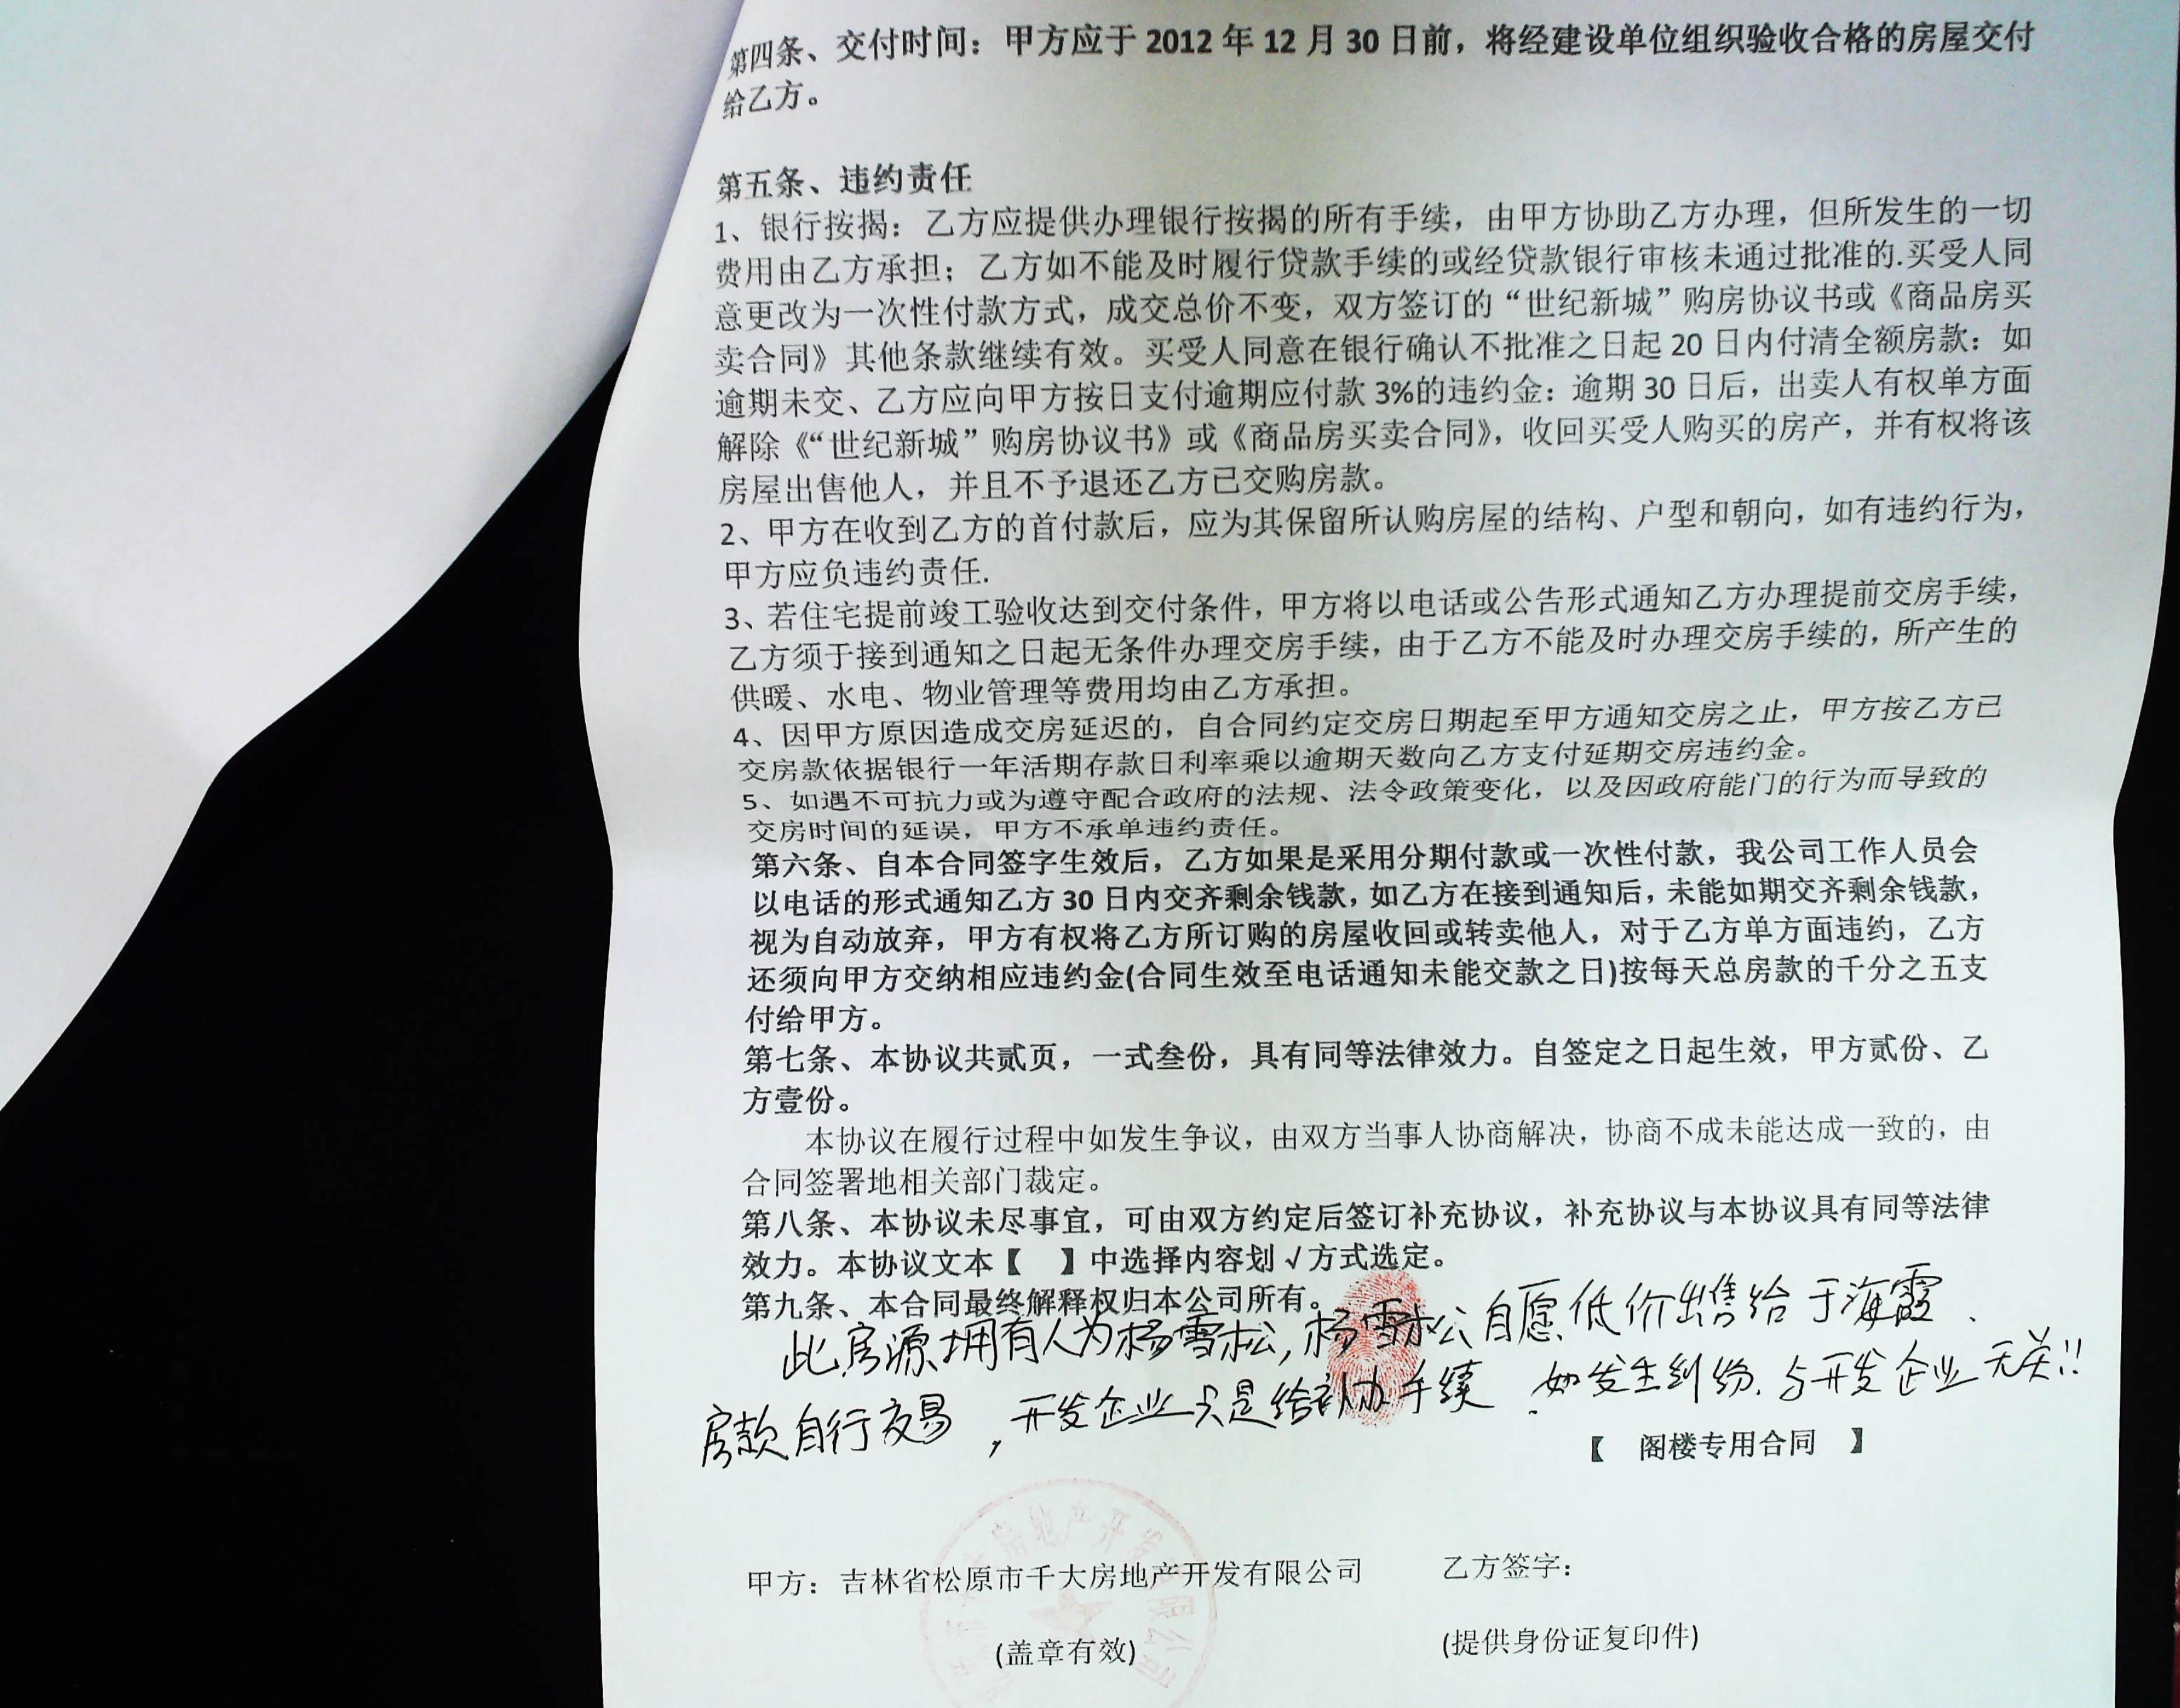 第四条、交付时间：甲方应于 2012 年 12 月 30 日前，将经建设单位组织验收合格的房屋交付
给乙方。
第五条、违约责任
1、银行按揭：乙方应提供办理银行按揭的所有手续，由甲方协助乙方办理，但所发生的一切
费用由乙方承担；乙方如不能及时履行贷款手续的或经贷款银行审核未通过批准的.买受人同
意更改为一次性付款方式，成交总价不变，双方签订的“世纪新城”购房协议书或《商品房买
卖合同》其他条款继续有效。买受人同意在银行确认不批准之日起 20 日内付清全额房款：如
逾期未交、乙方应向甲方按日支付逾期应付款 3%的违约金：逾期 30 日后，出卖人有权单方面
解除《“世纪新城”购房协议书》或《商品房买卖合同》，收回买受人购买的房产，并有权将该
房屋出售他人，并且不予退还乙方已交购房款。
2、甲方在收到乙方的首付款后，应为其保留所认购房屋的结构、户型和朝向，如有违约行为，
甲方应负违约责任.
3、若住宅提前竣工验收达到交付条件，甲方将以电话或公告形式通知乙方办理提前交房手续，
乙方须于接到通知之日起无条件办理交房手续，由于乙方不能及时办理交房手续的，所产生的
供暖、水电、物业管理等费用均由乙方承担。
4、因甲方原因造成交房延迟的，自合同约定交房日期起至甲方通知交房之止，甲方按乙方已
交房款依据银行一年活期存款日利率乘以逾期天数向乙方支付延期交房违约金。
5、如遇不可抗力或为遵守配合政府的法规、法令政策变化，以及因政府能门的行为而导致的
交房时间的延误，甲方不承单违约责任。
第六条、自本合同签字生效后，乙方如果是采用分期付款或一次性付款，我公司工作人员会
以电话的形式通知乙方 30 日内交齐剩余钱款，如乙方在接到通知后，未能如期交齐剩余钱款，
视为自动放弃，甲方有权将乙方所订购的房屋收回或转卖他人，对于乙方单方面违约，乙方
还须向甲方交纳相应违约金(合同生效至电话通知未能交款之日)按每天总房款的千分之五支
付给甲方。
第七条、本协议共贰页，一式叁份，具有同等法律效力。自签定之日起生效，甲方贰份、乙
方壹份。
本协议在履行过程中如发生争议，由双方当事人协商解决，协商不成未能达成一致的，由
合同签署地相关部门裁定。
第八条、本协议未尽事宜，可由双方约定后签订补充协议，补充协议与本协议具有同等法律
效力。本协议文本【 】中选择内容划√方式选定。
第九条、本合同最终解释权归本公司所有。
此房源拥有人为杨雪松，杨雪松自愿低价出售给于海霞、
房款自行交易，开发企业只是给办手续．如发生纠纷、与开发企业无关!!
【 阁楼专用合同 】
甲方：吉林省松原市千大房地产开发有限公司
乙方签字：
(盖章有效)
(提供身份证复印件)